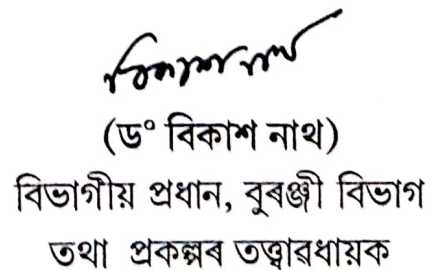 বিকাশ নাথ
(ড° বিকাশ নাথ)
বিভাগীয় প্ৰধান, বুৰঞ্জী বিভাগ
তথা প্ৰকল্পৰ তত্ত্বাৱধায়ক